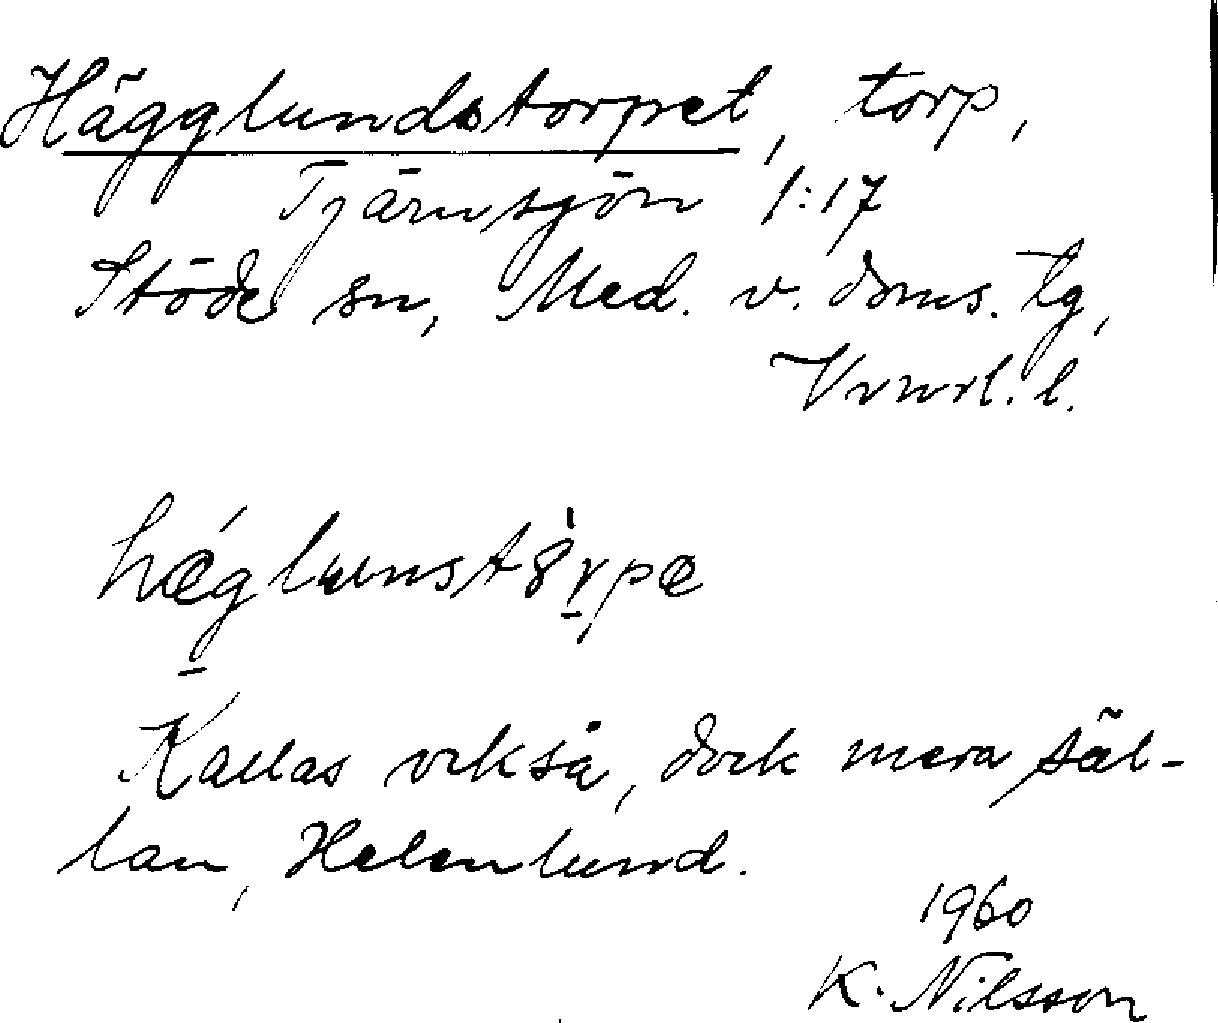 Hägglundstorpet, torp,
Tjärnsjön 1:17
Stöde sn, Med. v. doms. tg,
Vrnrl. l.
hæ̀glunstȣ́rpæ
Kallas också, dock mera säl-
lan, Helenlund.
1960
K. Nilsson